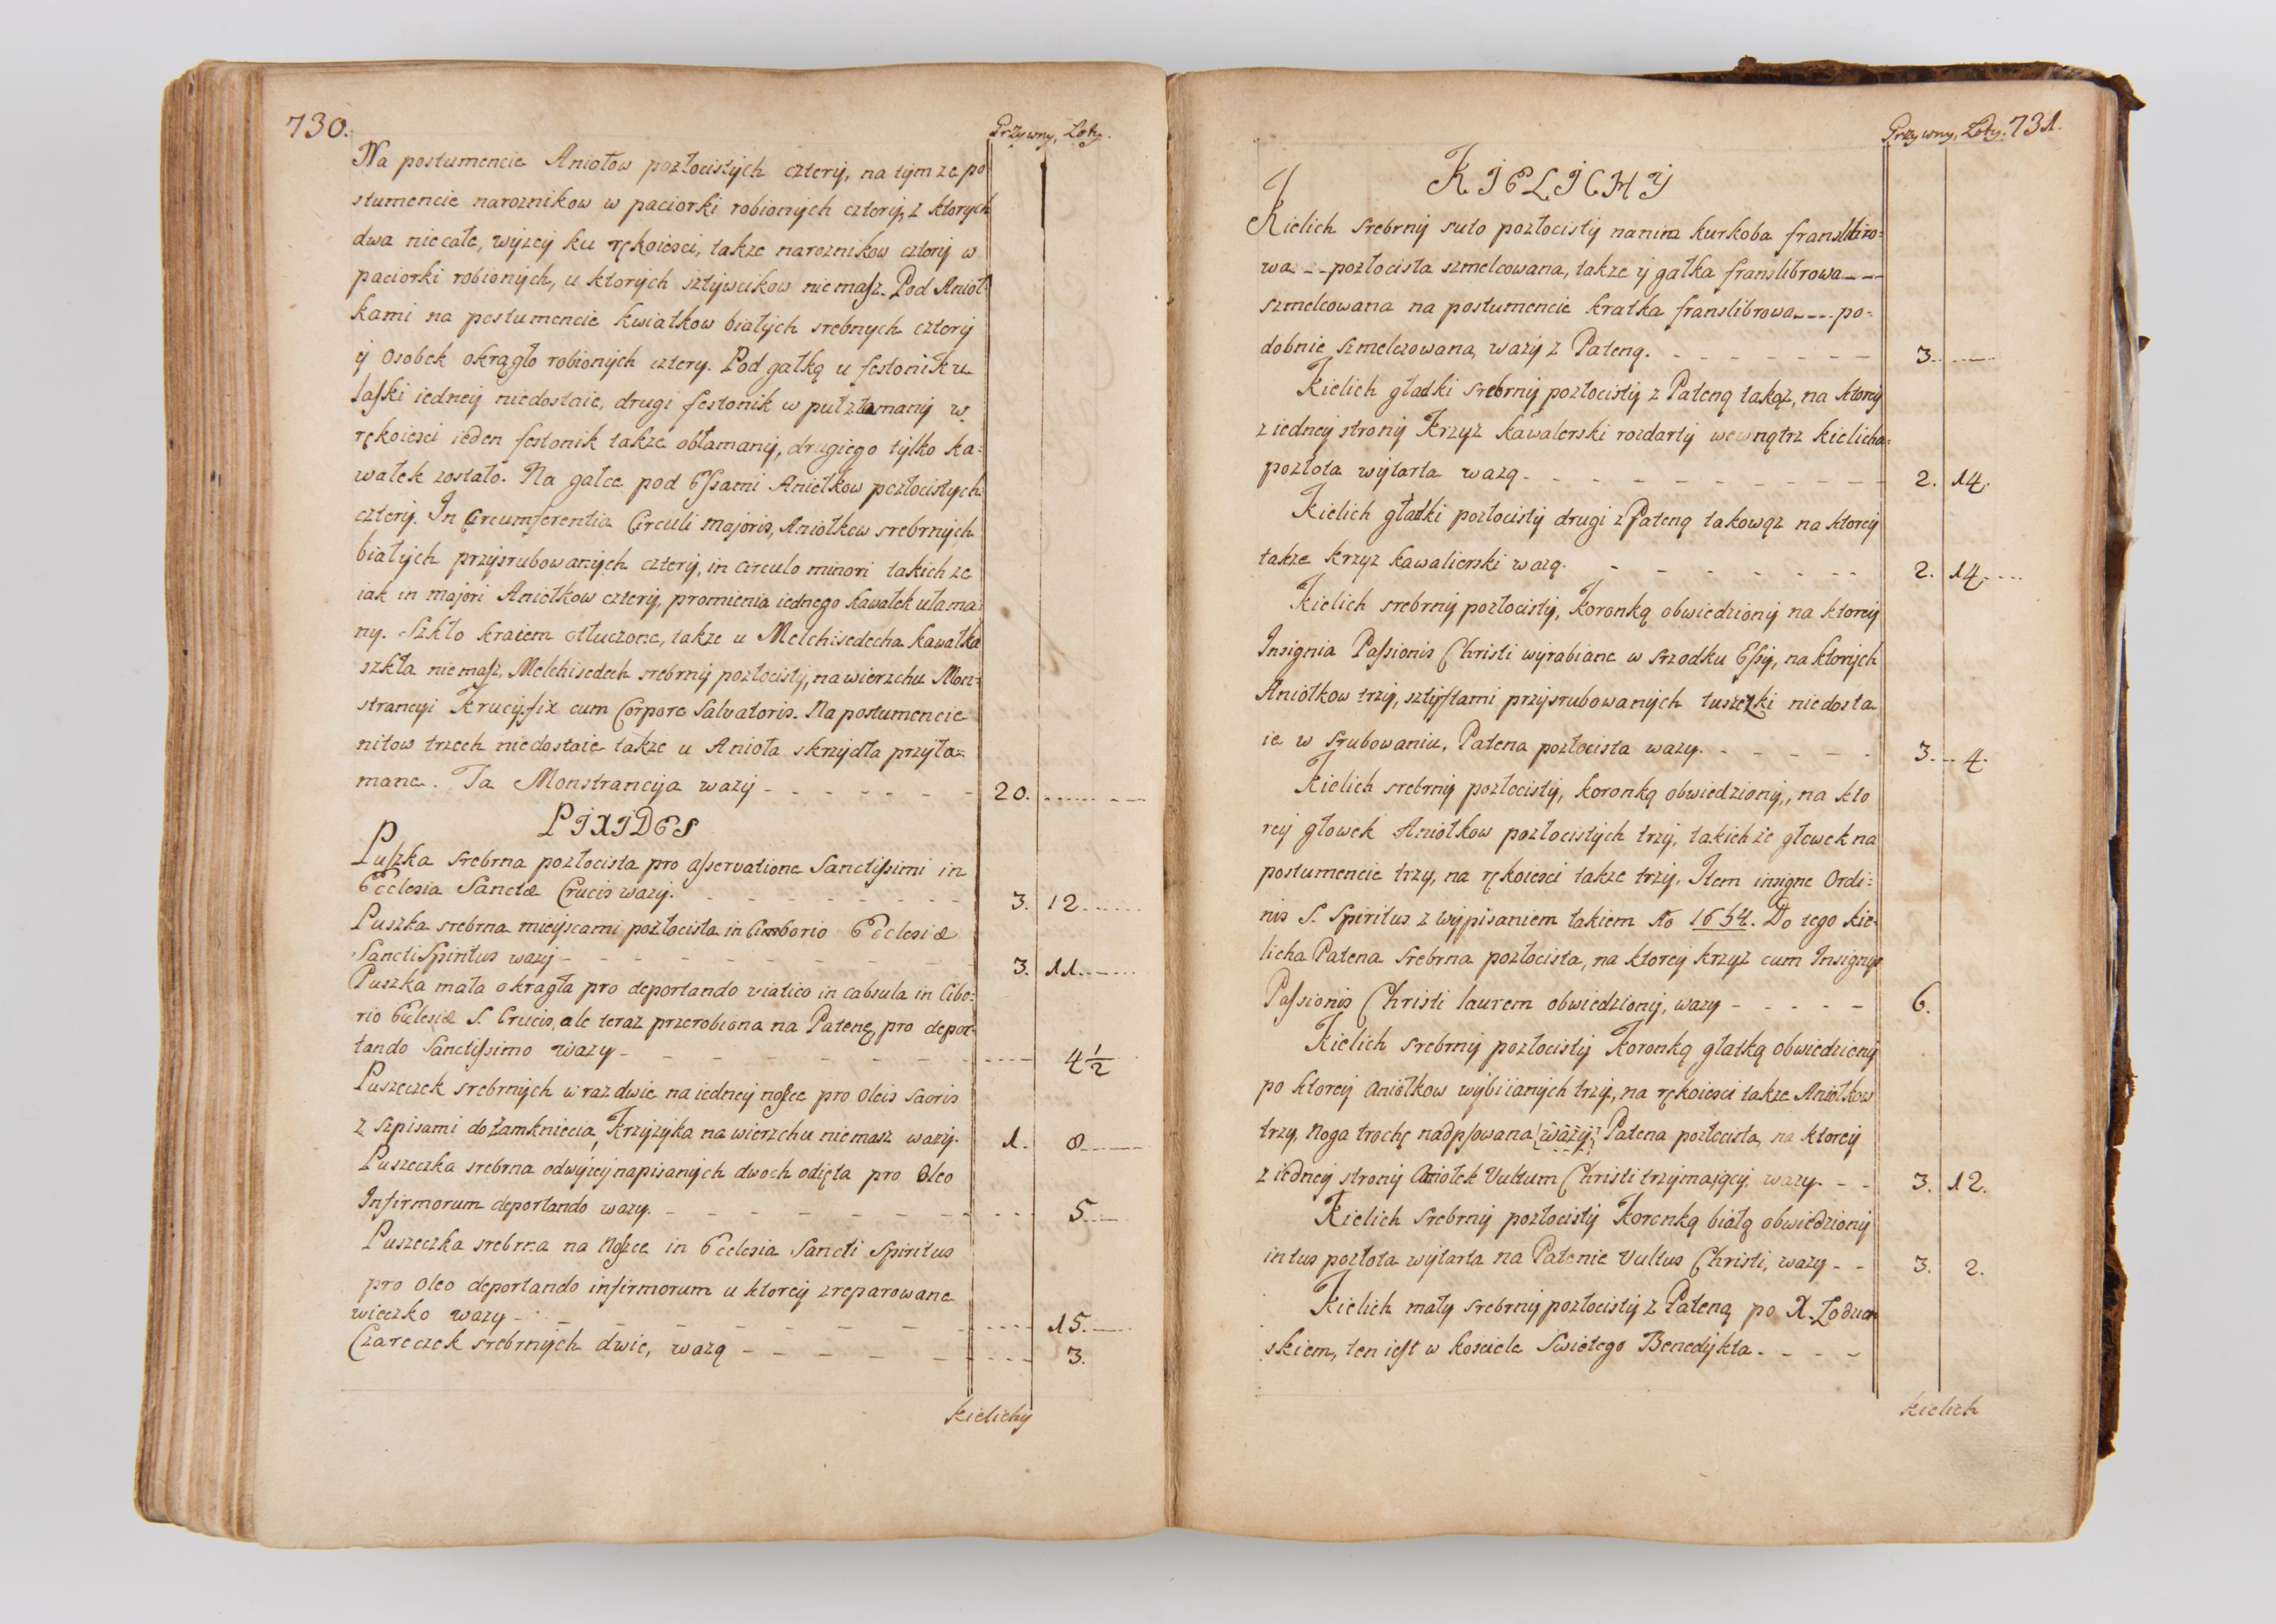 730.
Grzywny, Łoty.
Na postumencie Aniołow pozłocistych cztery, na tymze po
stumencie naroznikow w paciorki robionych cztery, z ktorych
dwa nie całe, wyzey ku rękoiesci, takze naroznikow cztery w
paciorki robionych, u ktorych sztywukow niemasz. Pod Anioł-
kami na postumencie kwiatkow białych srebnych cztery
y osobek okrągło robionych cztery. Pod gałką u festoniku
laski iedney niedostaie, drugi festonik w puł złamany w
rękoiesci ieden festonik takze obłamany, drugiego tylko ka=
wałek zostało. Na gałce pod Essami Aniołkow pozłocistych
cztery. In Circumferentia Circuli majoris, Aniołkow srebrnych
białych przysrubowanych cztery, in circulo minori takich ze
iak in majori Aniołkow cztery, promienia iednego kawałek ułama=
ny. Szkło kraiem otłuczone, takze u Melchisedecha kawałka
szkła niemasz, Melchisedech srebrny pozłocisty, na wierzchu Mon=
strancyi Krucyfix cum Corpore Salvatoris. Na postumencie
nitow trzech niedostaie takze u Anioła skrzydła przyła=
mane. Ta Monstrancyja wazy - - - - - - - 20. - - -
PIXIDES
Puszka srebrna pozłocista pro asservatione Sanctissimi in
Ecclesia Sanctæ Crucis wazy. - - - - - - - 3. 12 - - -
Puszka srebrna mieyscami pozłocista in Cimborio Ecclesiæ
Sancti Spiritus wazy - - - - - - - 3. 11. - - -
Puszka mała okrągła pro deportando viatico in cabsula in Cibo=
rio Ecclesiæ S. Crucis, ale teraz przerobiona na Patenę pro depor=
tando Sanctissimo wazy - - - - - - - 4 1/2
Puszeczek srebrnych w raz dwie na iedney nosce pro Oleis Sacris
z szpisami do zamkniecia, Krzyzyka na wierzchu niemasz wazy. 1. 8 - - -
Puszeczka srebrna od wyzey napisanych dwoch odięta pro Oleo
Infirmorum deportando wazy. - - - - - - - 5. - -
Puszeczka srebrna na Nosce in Ecclesia Sancti Spiritus
pro Oleo deportando infirmorum u ktorey zreparowane
wieczko wazy - - - - - - - 15. - -
Czareczek srebrnych dwie, wazą - - - - - - - 3.
kielichy
Grzywny, Łoty. 731.
KIELICHY
Kielich srebrny suto pozłocisty na nim kurkoba franslibro=
wa - - pozłocista szmelcowana, takze y gałka franslibrowa - - -
szmelcowana na postumencie kratka franslibrowa - - - po=
dobnie szmelcowana, wazy z Pateną. - - - - - - 3. - - -
Kielich gładki srebrny pozłocisty z Pateną takąz, na ktorey
z iedney strony Krzyz kawalerski rozdarty wewnątrz kielicha=
pozłota wytarta wazą - - - - - - - - 2. 14.
Kielich gładki pozłocisty drugi z Pateną takowąz na ktorey
takze krzyz kawalierski wazą. - - - - - - - 2. 14. - - -
Kielich srebrny pozłocisty, Koronką obwiedziony na ktorey
Insignia Passionis Christi wyrabiane w srzodku Essy, na ktorych
Aniołkow trzy, sztyftami przysrubowanych łuszczki niedosta
ie w srubowaniu, Patena pozłocista wazy. - - - - - 3. - - 4.
Kielich srebrny pozłocisty, koronką obwiedziony, na kto
rey głowek Aniołkow pozłocistych trzy, takichze głowek na
postumencie trzy, na rękoiesci takze trzy, Item insigne Ordi=
nis S. Spiritus z wypisaniem takiem Ao 1654. Do tego kie=
licha Patena srebrna pozłocista, na ktorey krzyz cum Insigniis
Passionis Christi laurem obwiedziony, wazy - - - - - 6.
Kielich srebrny pozłocisty Koronką gładką obwiedziony
po ktorey aniołkow wybiianych trzy, na rękoiesci takze Aniołkow
trzy, noga trochę nadpsowana (wazy) Patena pozłocista, na ktorey
z iedney strony Aniołek Vultum Christi trzymaiący, wazy. - - 3. 12.
Kielich srebrny pozłocisty Koronką białą obwiedziony
intus pozłota wytarta na Patenie Vultus Christi, wazy - - 3. 2.
Kielich mały srebrny pozłocisty z Pateną po X.
skiem, ten iest w kosciele Swiętego Benedykta. - - - -
kielich